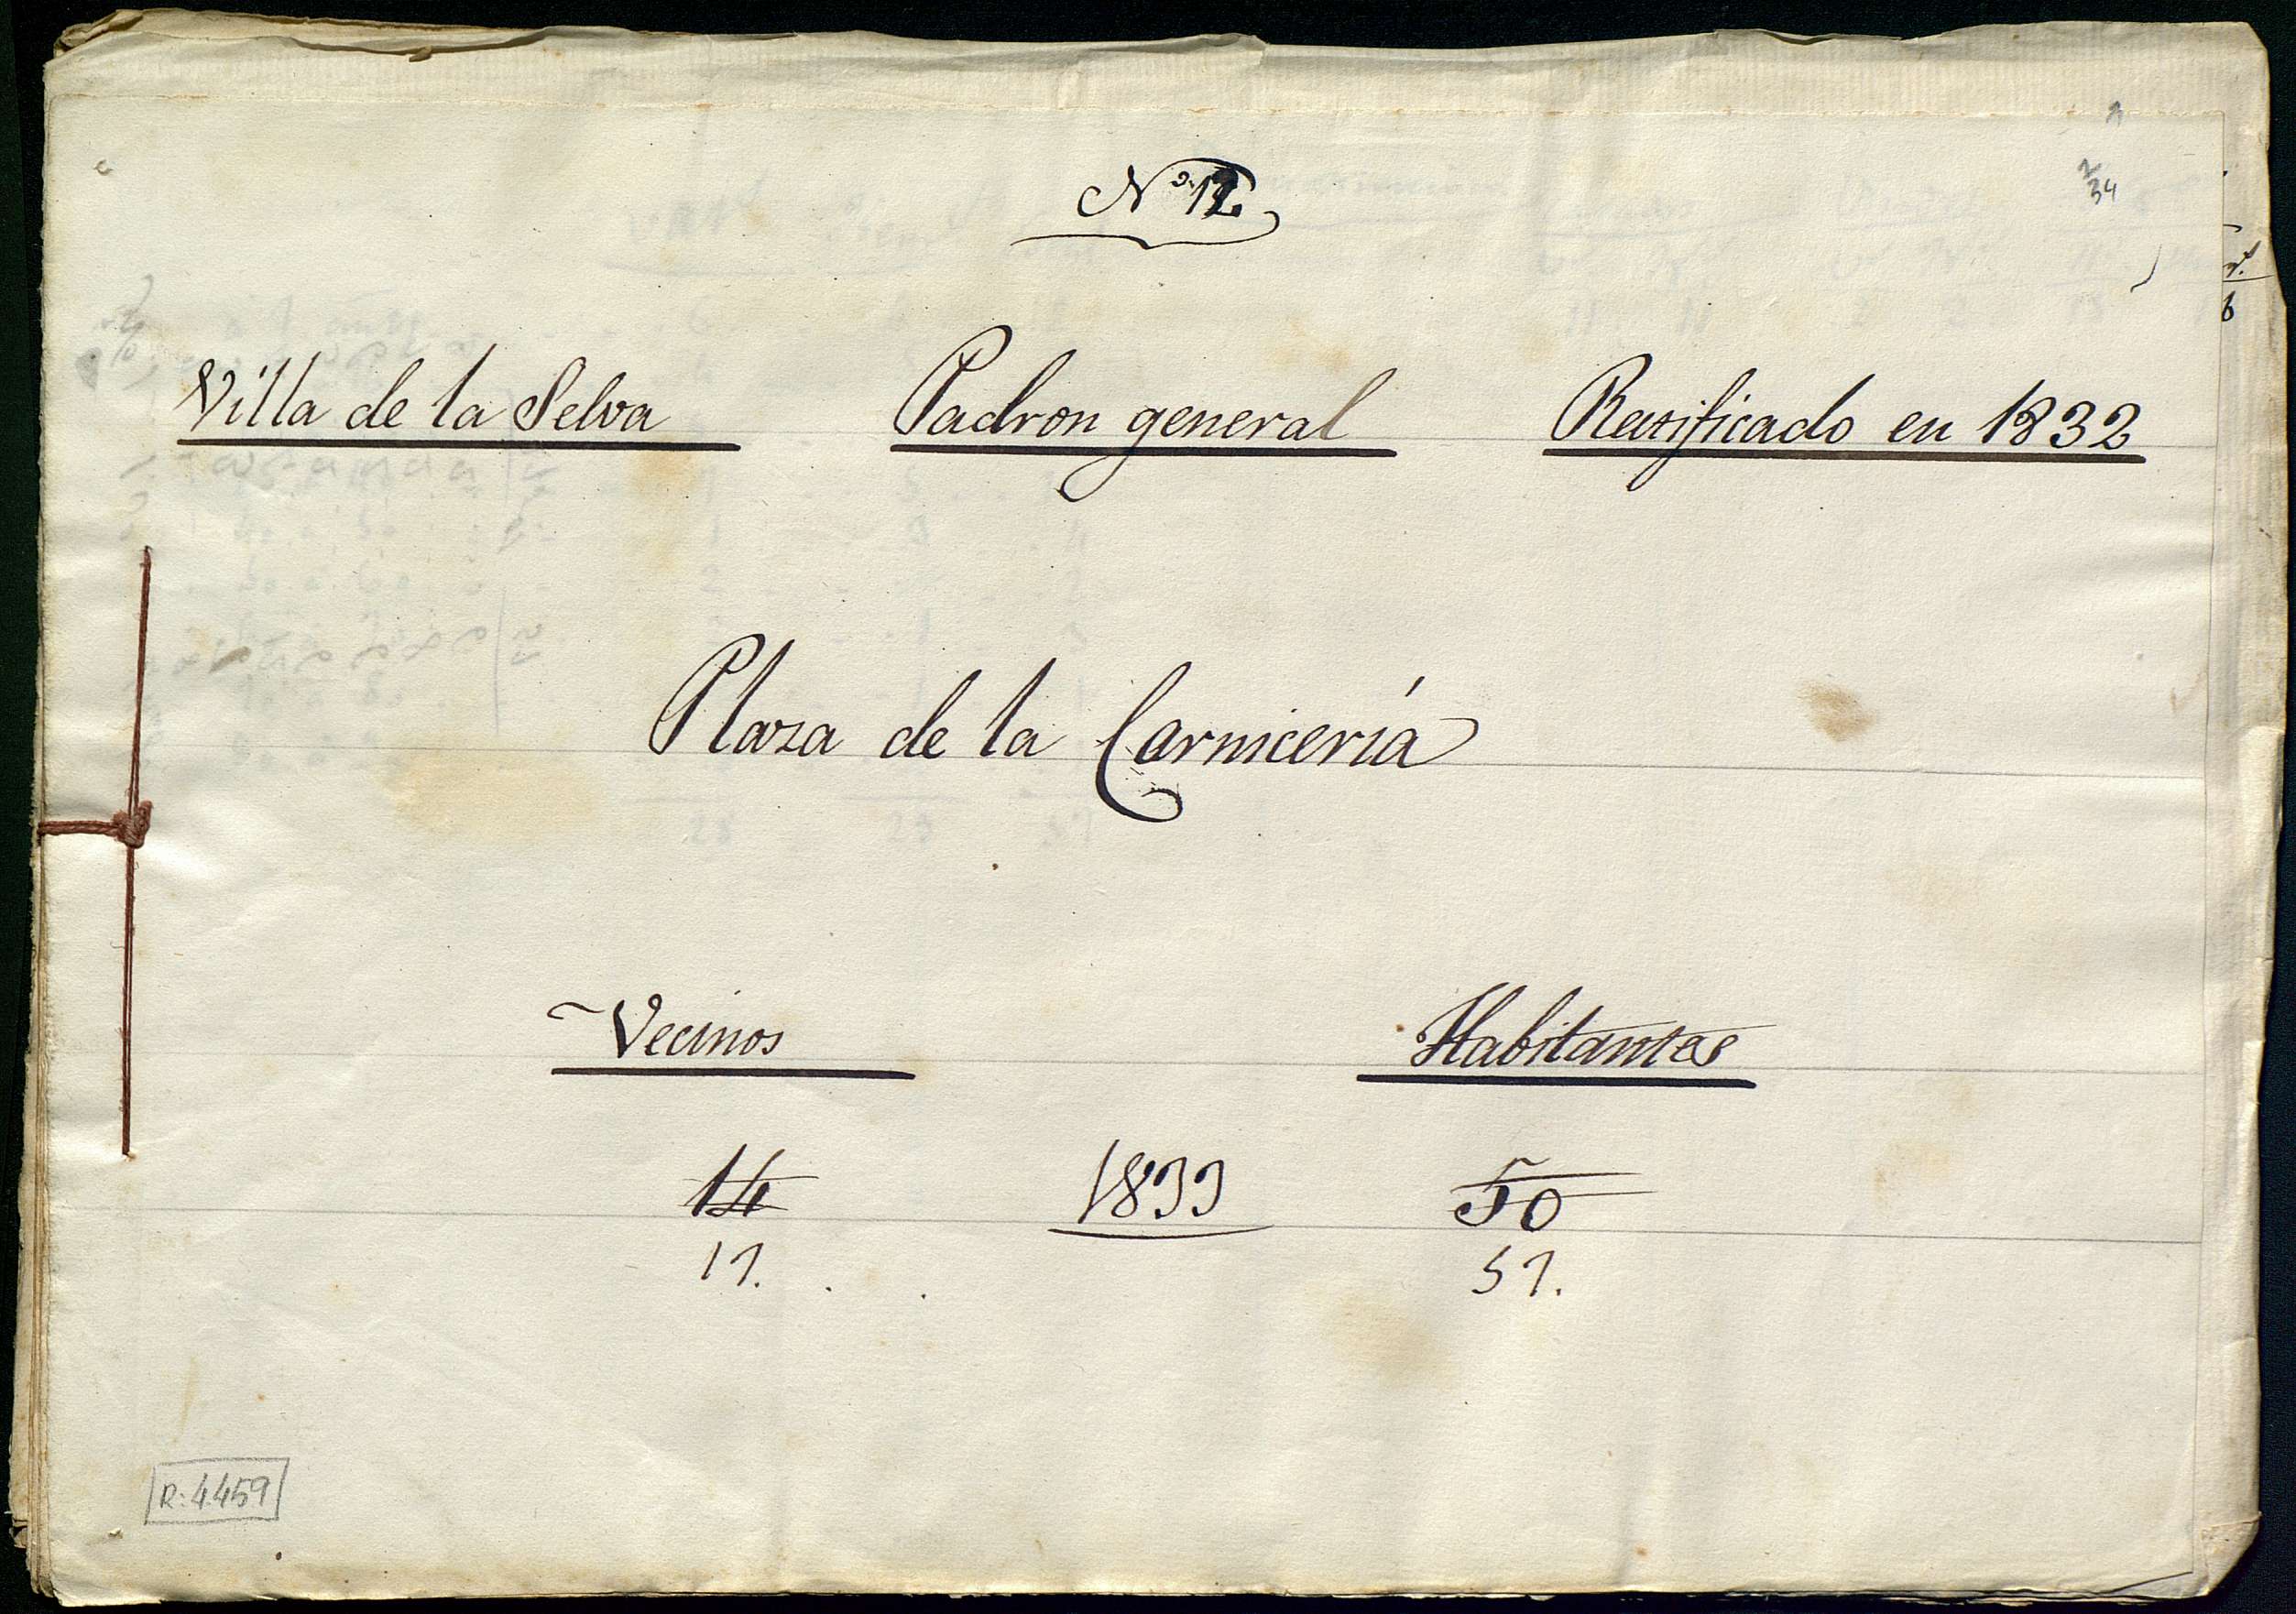 Nº 12
2
34
Villa de la Selva Padron general Ratificado en 1832
Plaza de la Carnicería
Vecinos Habitantes
14 1833 50
17. 57.
R: 4459